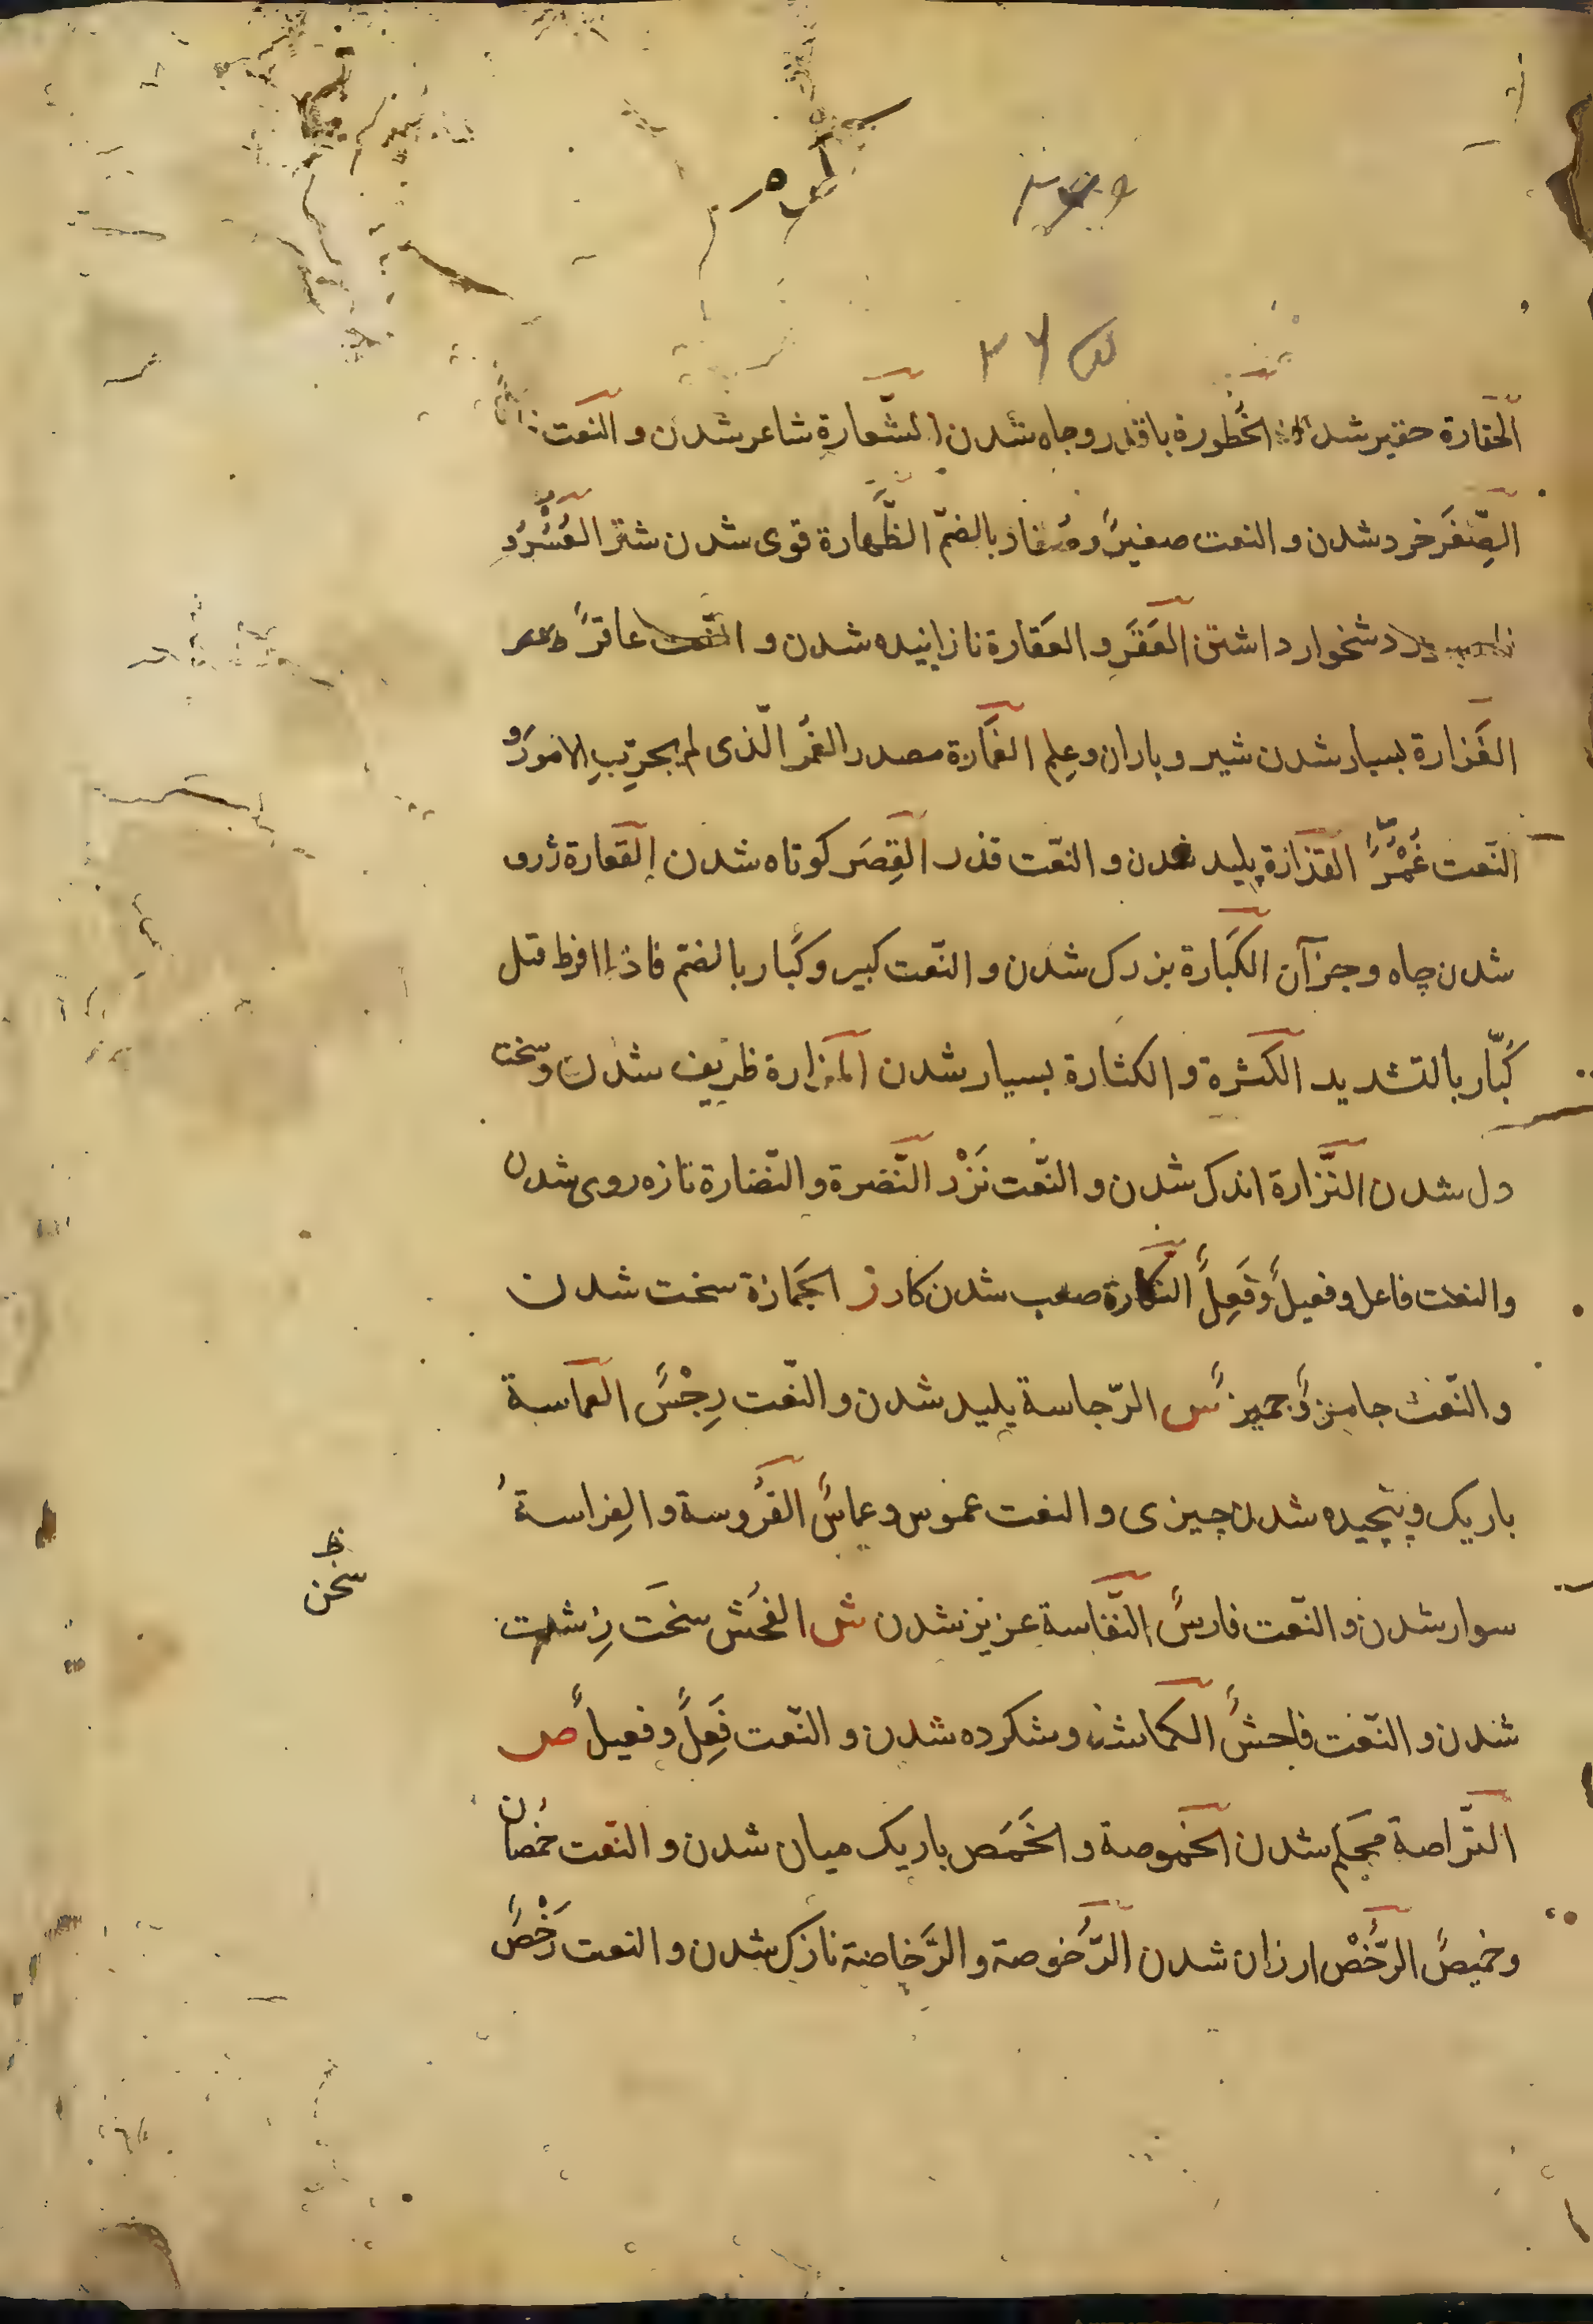 الحَقارة حقیر شدن الخُطورة باقدر و جاه شدن الشَّعارة شاعر شدن و النعت
الصِّغَر خرد شدن و النعت صغیرٌ و صُغار بالضمّ الظَّهارة قوی شدن شتر العُسْرُ دِ
دشخوار داشتن العَقَر و العَقارة نازاینده شدن و النّعت عاقرٌ
الغَزارة بسیار شدن شیر و باران و علِم الغَمارَة مصدر الغُمر الّذی لم یجرّبِ الامورَ و
النّعت غُمْرٌ القَذارة پلید شدن و النعّت قذر القِصَر کوتاه شدن القَعارة ژرف
شدن چاه و جز آن الکَبارة بزرک شدن و النّعت کبیر و کُبار بالضمّ فاذا افرط قیل
کُبّار بالتشدید الکَثرة و الکثارة بسیار شدن المَزارة ظریف شدن و سخت
دل شدن النَّزارة اندک شدن و النّعت نَزْر النَّضرة و النَّضارة تازه روی شدن
و النعت فاعل و فعیلٌ و فَعِلٌ النکارة صعب شدن کار ز الجَمازة سخت شدن
و النّعت جامزٌ و جمیز س الرّجاسة پلید شدن و النّعت رِجْسٌ العماسة
باریک و پیچیده شدن چیزی و النعت عموس و عماسٌ الفُروسة و الفِراسة
سوار شدن و النّعت فارسٌ النَّفاسة عزیز شدن ش الفُحش سخت زشت
سخن
شدن و النّعت فاحشٌ الکماشة وشکرده شدن و النّعت فَعِلٌ و فعیلٌ ص
التَّراصة محکم شدن الخُموصة و الخَمَص باریک میان شدن و النّعت خُمصان
و خمیصٌ الرُّخْص ارزان شدن الرُّخوصة و الرَّخاصة نازک شدن و النعت رَخْصٌ